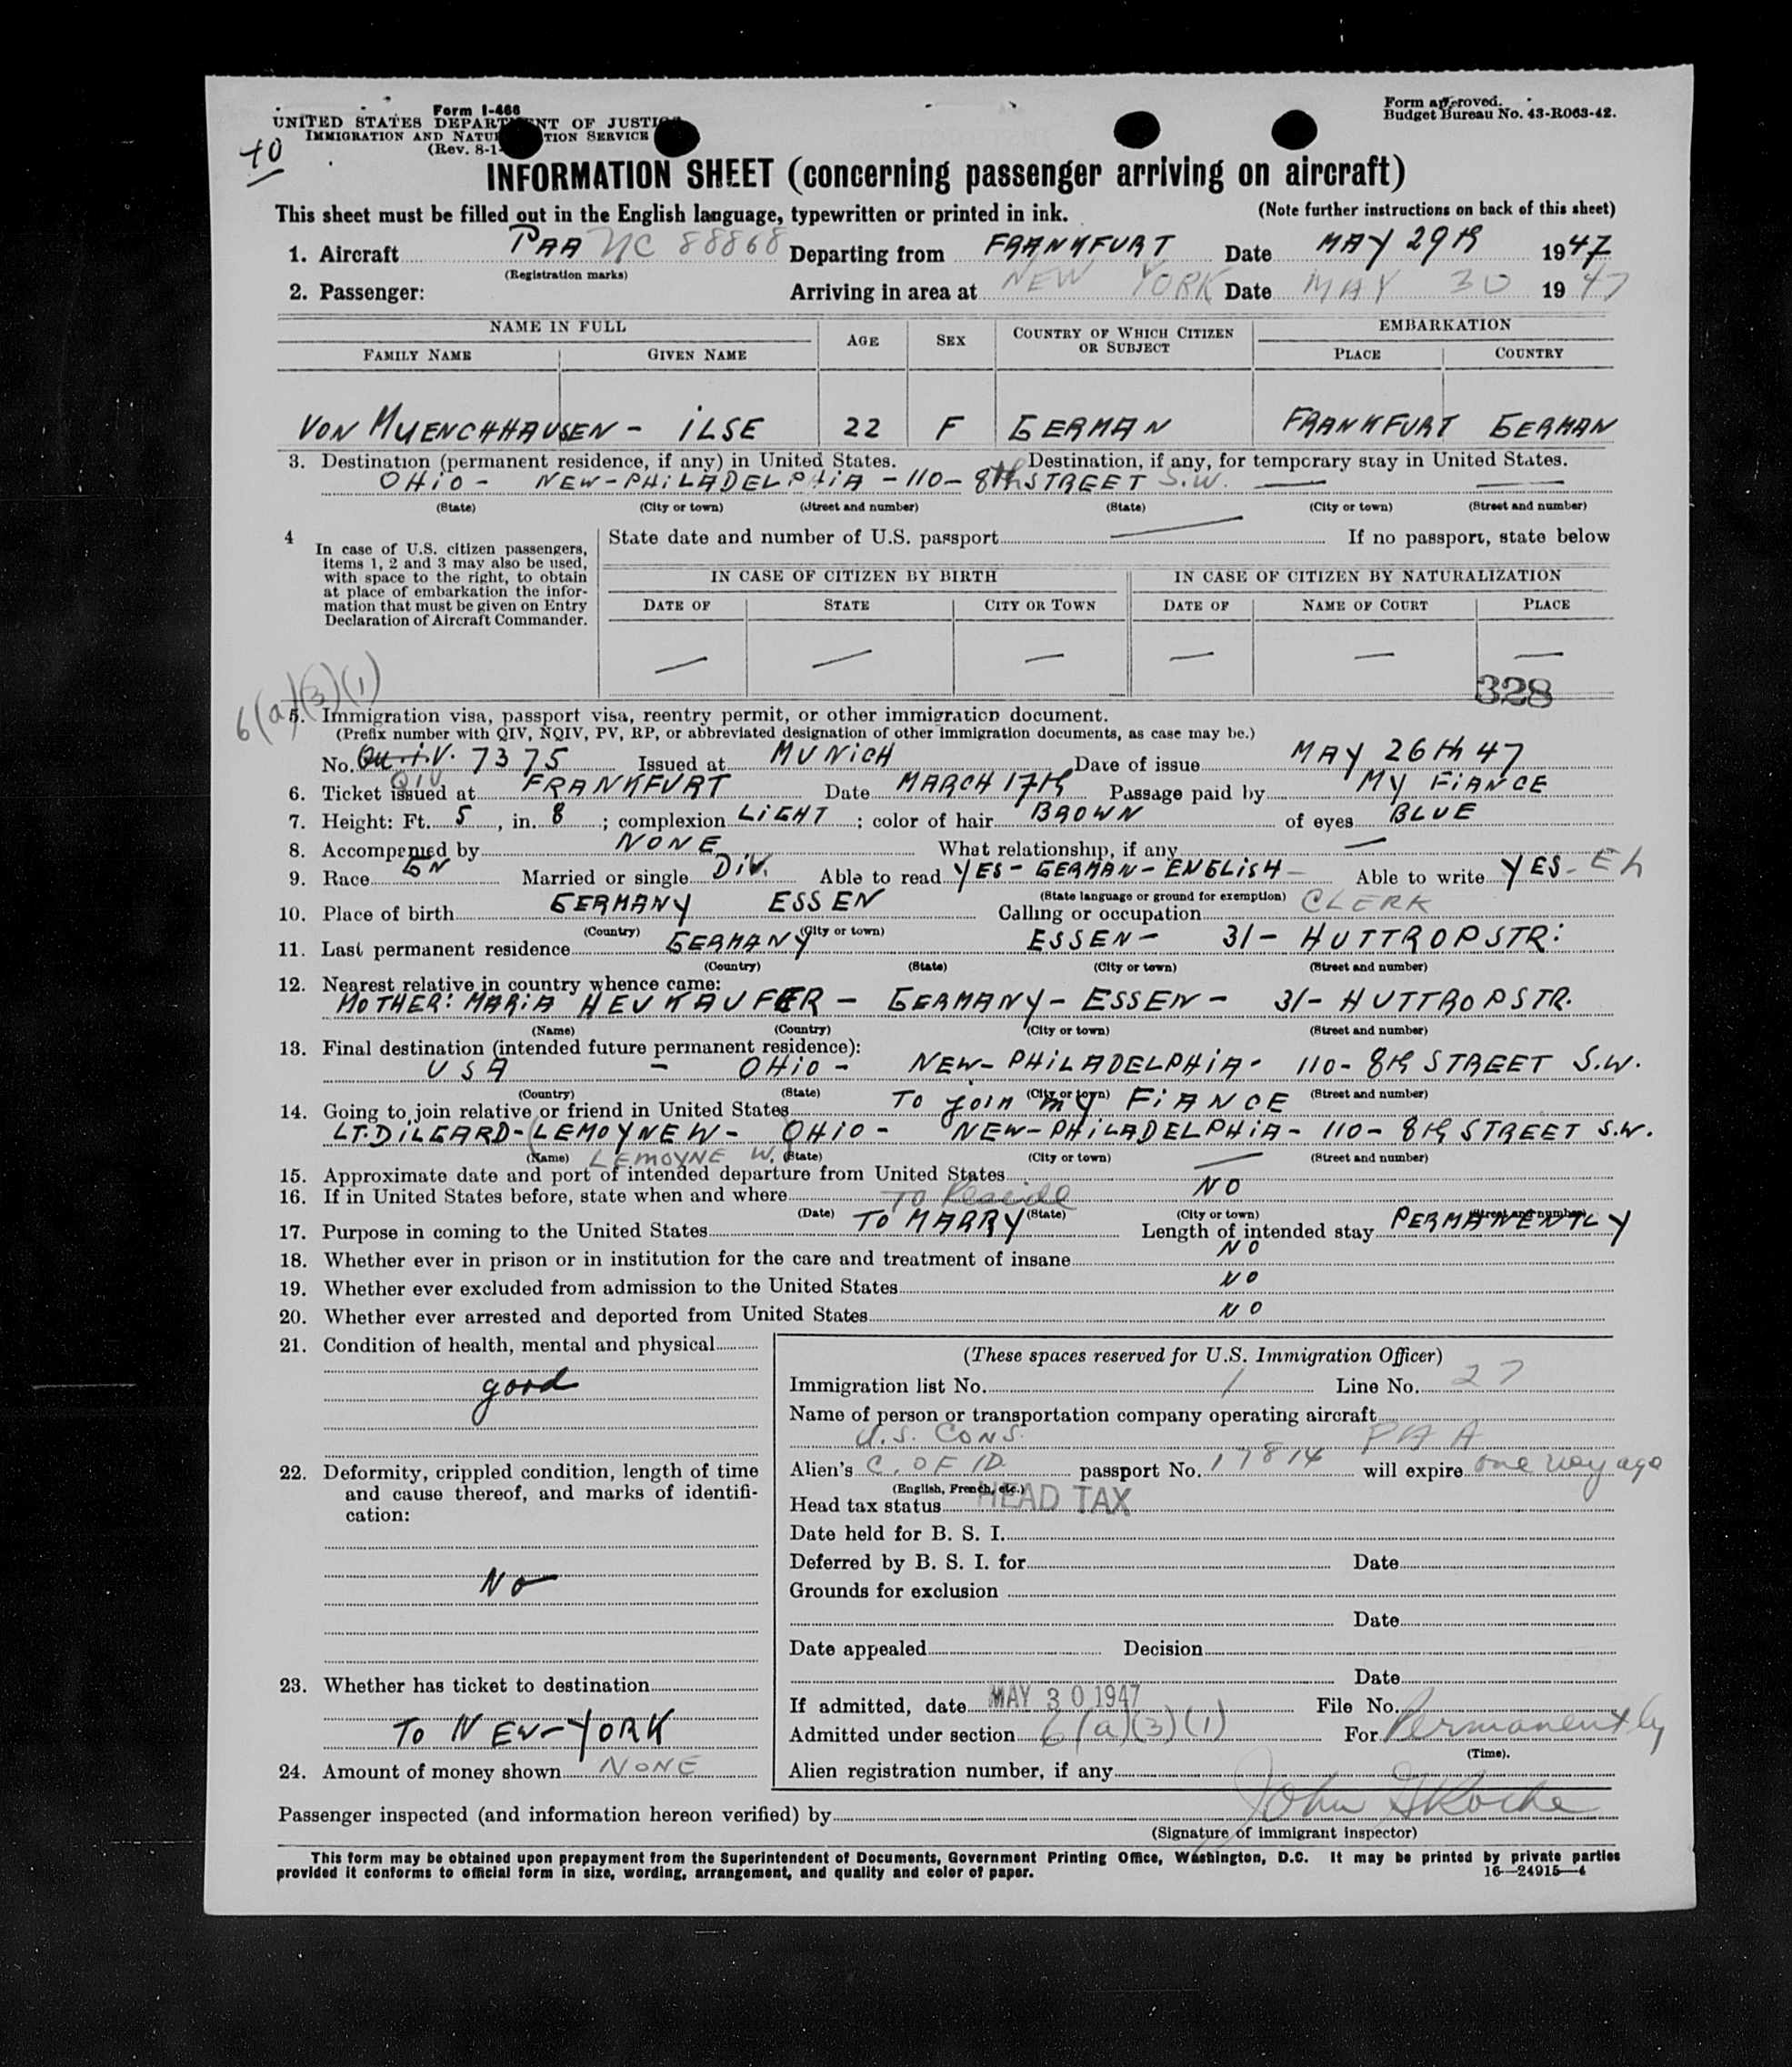 Form I-466
UNITED STATES DEPARTMENT OF JUSTICE
IMMIGRATION AND NATURALIZATION SERVICE
(Rev. 8-1-
Form approved.
Budget Bureau No. 43-R063-42.
10
INFORMATION SHEET (concerning passenger arriving on aircraft)
This sheet must be filled out in the English language, typewritten or printed in ink. (Note further instructions on back of this sheet)
1. Aircraft PAA NC 88868 Departing from FRANKFURT Date MAY 29th 1947
(Registration marks)
2. Passenger: Arriving in area at NEW YORK Date MAY 30 1947
NAME IN FULL AGE SEX COUNTRY OF WHICH CITIZEN OR SUBJECT EMBARKATION
FAMILY NAME GIVEN NAME PLACE COUNTRY
VON MUENCHHAUSEN - ILSE 22 F GERMAN FRANKFURT GERMAN
3. Destination (permanent residence, if any) in United States. Destination, if any, for temporary stay in United States.
OHIO - NEW-PHILADELPHIA - 110 - 8th STREET S.W. — —
(State) (City or town) (Street and number) (State) (City or town) (Street and number)
4 In case of U.S. citizen passengers, items 1, 2 and 3 may also be used, with space to the right, to obtain at place of embarkation the information that must be given on Entry Declaration of Aircraft Commander.
State date and number of U.S. passport — If no passport, state below
IN CASE OF CITIZEN BY BIRTH IN CASE OF CITIZEN BY NATURALIZATION
DATE OF STATE CITY OR TOWN DATE OF NAME OF COURT PLACE
— — — — — —
328
6(a)(3)(1)
5. Immigration visa, passport visa, reentry permit, or other immigration document.
(Prefix number with QIV, NQIV, PV, RP, or abbreviated designation of other immigration documents, as case may be.)
No. Qu.i.V. 7375 Issued at MUNICH Date of issue MAY 26th 47
QIV
6. Ticket issued at FRANKFURT Date MARCH 17th Passage paid by MY FIANCE
7. Height: Ft. 5, in. 8; complexion LIGHT; color of hair BROWN of eyes BLUE
8. Accompanied by NONE What relationship, if any —
9. Race GN Married or single DIV. Able to read YES - GERMAN - ENGLISH - Able to write YES - Eh
(State language or ground for exemption)
10. Place of birth GERMANY ESSEN Calling or occupation CLERK
(Country) (City or town)
11. Last permanent residence GERMANY ESSEN - 31 - HUTTROPSTR:
(Country) (State) (City or town) (Street and number)
12. Nearest relative in country whence came:
MOTHER: MARIA HEUKAUFER - GERMANY - ESSEN - 31 - HUTTROPSTR.
(Name) (Country) (City or town) (Street and number)
13. Final destination (intended future permanent residence):
USA - OHIO - NEW-PHILADELPHIA - 110 - 8th STREET S.W.
(Country) (State) (City or town) (Street and number)
14. Going to join relative or friend in United States TO join my FIANCE
LT. DILGARD - LEMOYNEW - OHIO - NEW-PHILADELPHIA - 110 - 8th STREET S.W.
(Name) LEMOYNE W. (State) (City or town) (Street and number)
15. Approximate date and port of intended departure from United States —
16. If in United States before, state when and where NO
(Date) (State) (City or town) (Street and number)
To Reside
17. Purpose in coming to the United States TO MARRY Length of intended stay PERMANENTLY
18. Whether ever in prison or in institution for the care and treatment of insane NO
19. Whether ever excluded from admission to the United States NO
20. Whether ever arrested and deported from United States NO
21. Condition of health, mental and physical
good
22. Deformity, crippled condition, length of time
and cause thereof, and marks of identifi-
cation:
No
23. Whether has ticket to destination
TO NEW-YORK
24. Amount of money shown NONE
(These spaces reserved for U.S. Immigration Officer)
Immigration list No. 1 Line No. 27
Name of person or transportation company operating aircraft
PAA
U.S. CONS.
Alien's C. OF ID. passport No. 17814 will expire one way
(English, French, etc.)
Head tax status HEAD TAX
Date held for B. S. I.
Deferred by B. S. I. for Date
Grounds for exclusion
Date
Date appealed Decision
Date
If admitted, date MAY 30 1947 File No.
Admitted under section 6(a)(3)(1) For Permanently
(Time).
Alien registration number, if any
Passenger inspected (and information hereon verified) by John Roche
(Signature of immigrant inspector)
This form may be obtained upon prepayment from the Superintendent of Documents, Government Printing Office, Washington, D.C. It may be printed by private parties
provided it conforms to official form in size, wording, arrangement, and quality and color of paper. 16—24915-4